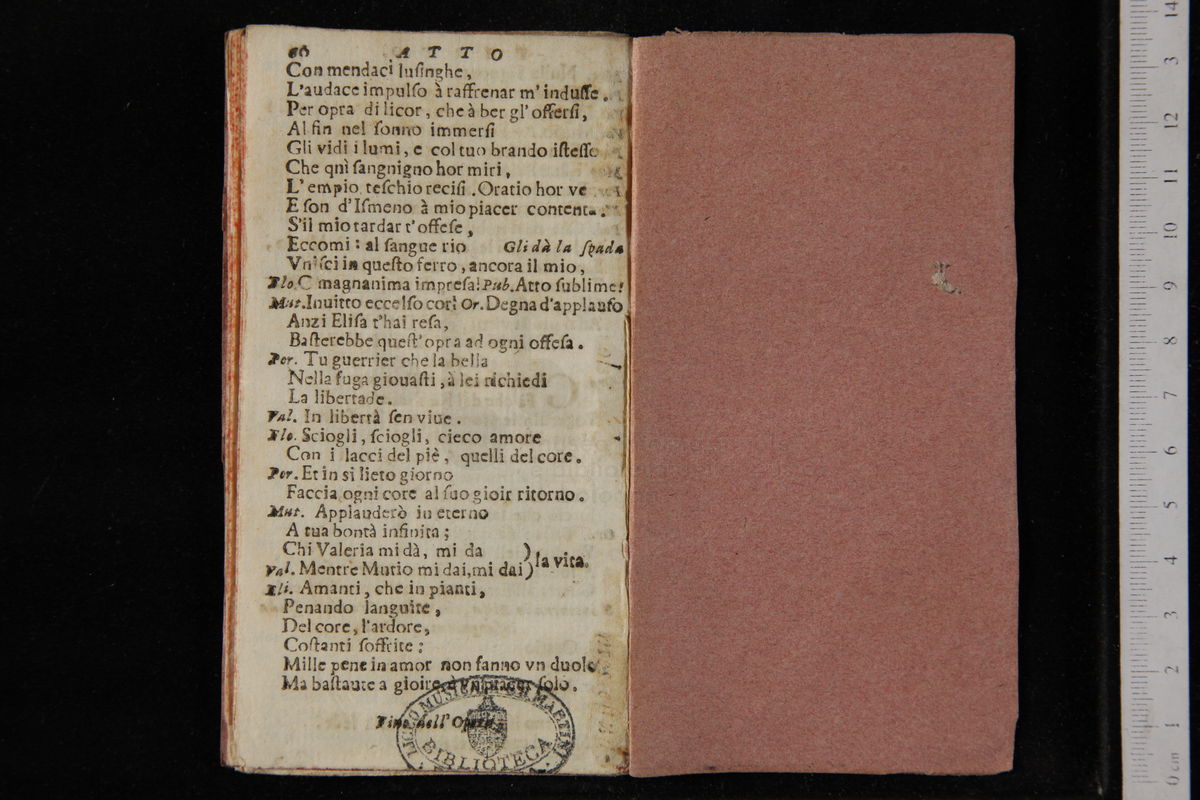 60 ATTO
Con mendaci lusinghe,
L'audace impulso à raffrenar m'indusse.
Per opra di licor, che à ber gl'offersi,
Al fin nel sonno immersi
Gli vidi i lumi, e col tuo brando istesso
Che qnì sangnigno hor miri,
L'empio teschio recisi. Oratio hor ve
E son d'Ismeno à mio piacer contenta.
S'il mio tardar t'offese,
Eccomi: al sangue rio Gli dà la spada
Vnisci in questo ferro, ancora il mio,
Flo. O magnanima impresa! Pub. Atto sublime!
Mut. Inuitto eccelso cor! Or. Degna d'applauso
Anzi Elisa t'hai resa,
Basterebbe quest'opra ad ogni offesa.
Por. Tu guerrier che la bella
Nella fuga giouasti, à lei richiedi
La libertade.
Val. In libertà sen viue.
Flo. Sciogli, sciogli, cieco amore
Con i lacci del piè, quelli del core.
Por. Et in sì lieto giorno
Faccia ogni core al suo gioir ritorno.
Mut. Applauderò in eterno
A tua bontà infinita;
Chi Valeria mi dà, mi da )
Val. Mentre Mutio mi dai, mi dai ) la vita.
Eli. Amanti, che in pianti,
Penando languite,
Del core, l'ardore,
Costanti soffrite:
Mille pene in amor non fanno vn duolo
Ma bastaute a gioire, è vn piacer solo.
Fine dell'Opera.
LICEO MUSICALE G.B. MARTINI
BIBLIOTECA
0 cm 1 2 3 4 5 6 7 8 9 10 11 12 3 14